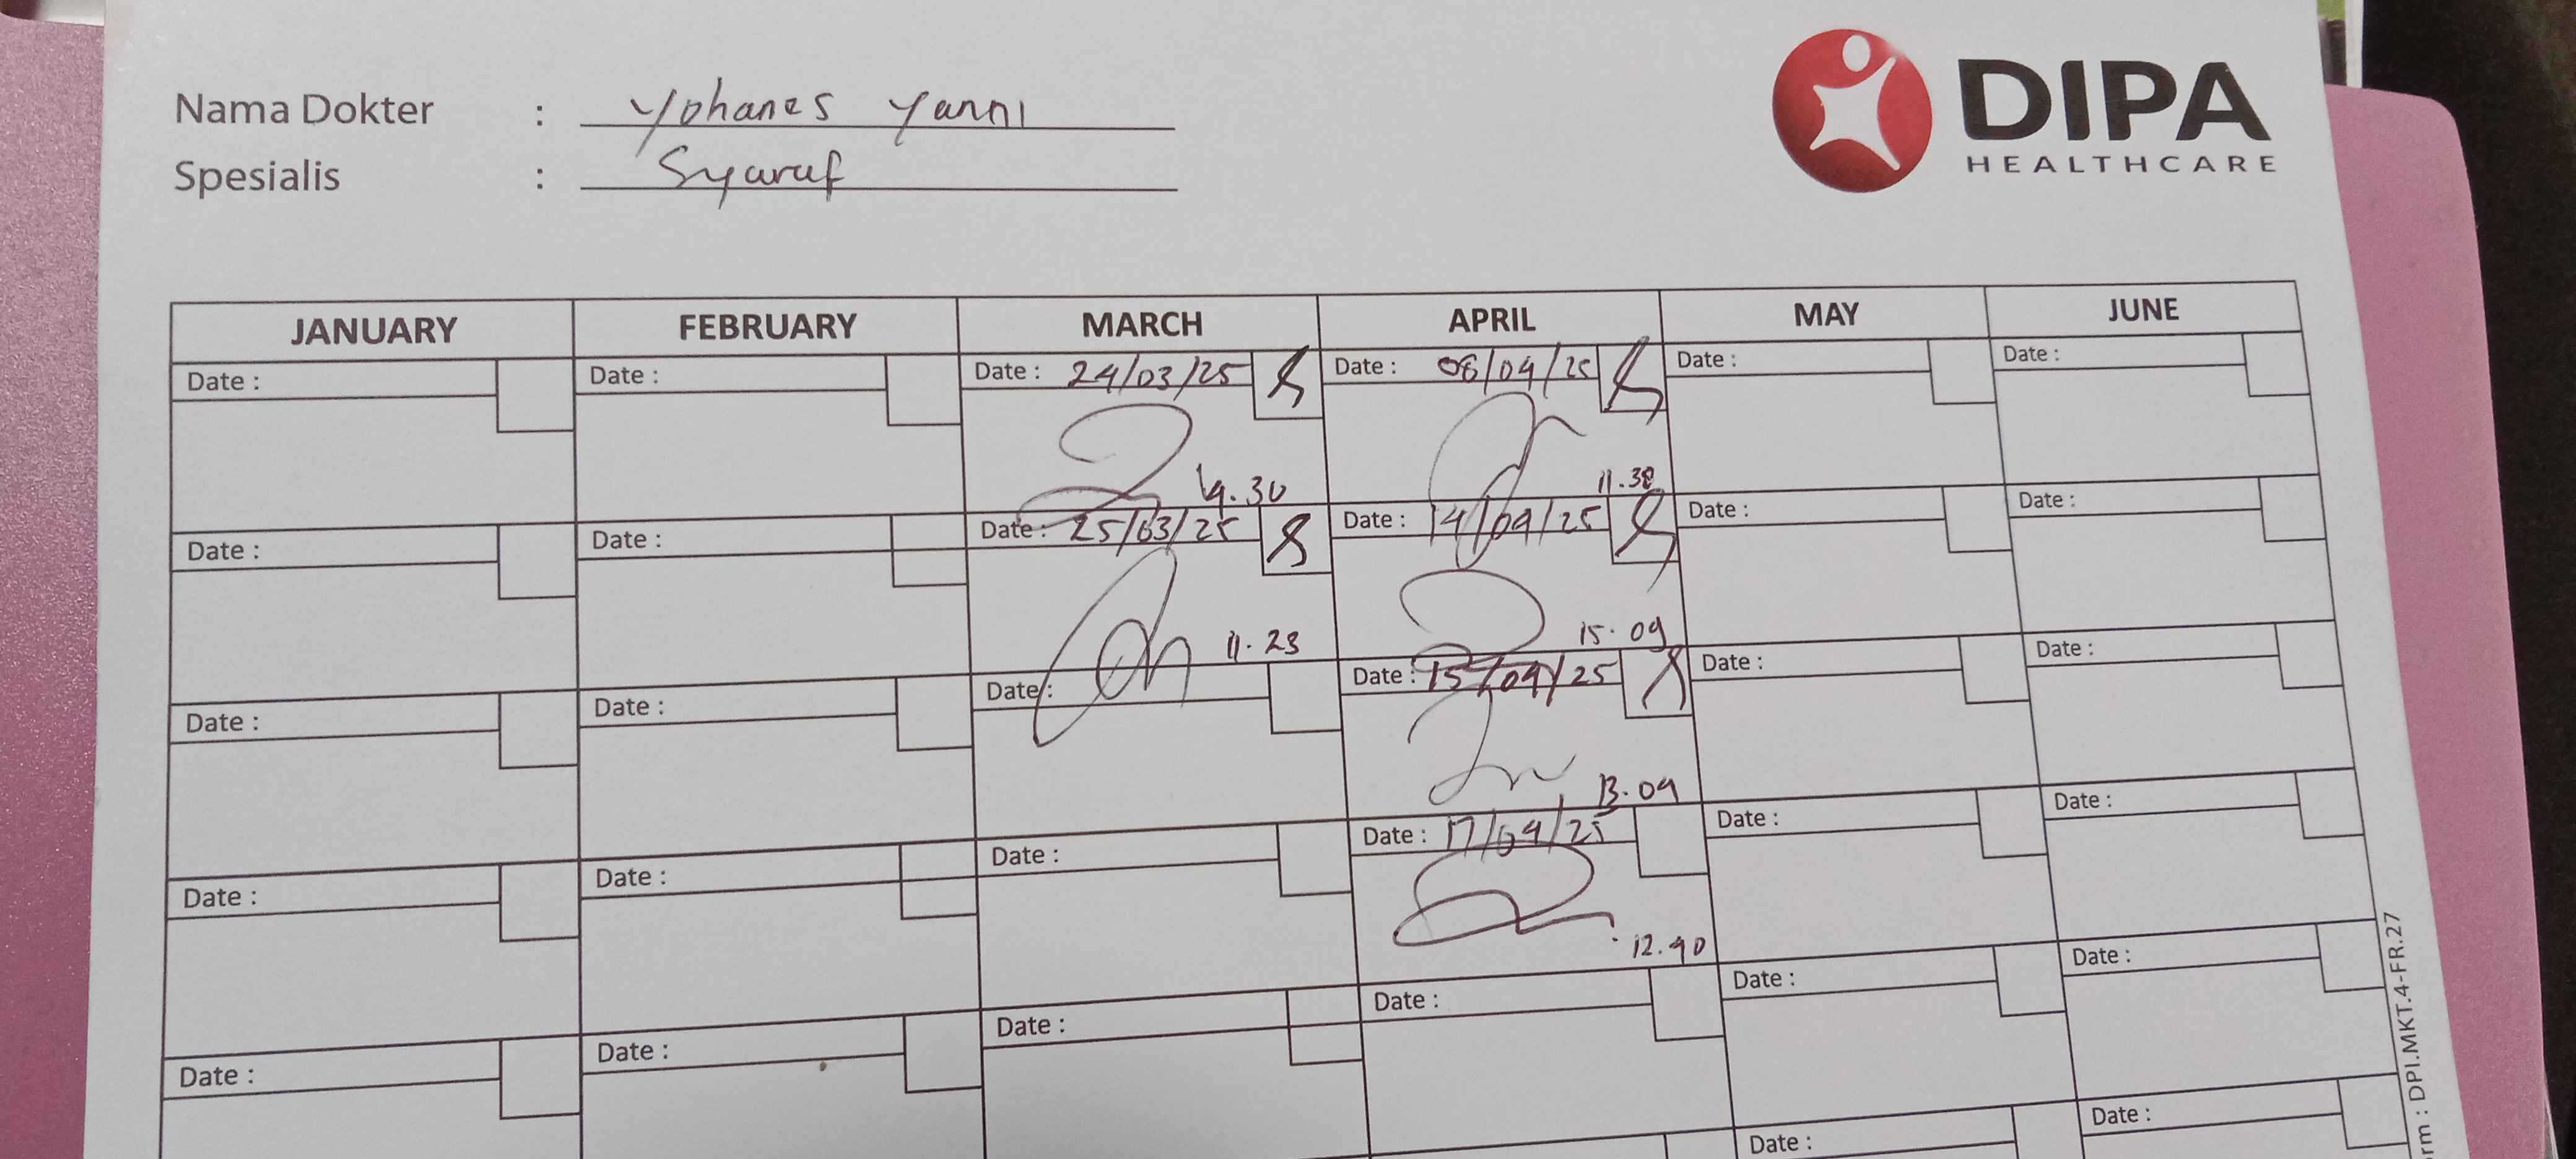 Nama Dokter : Yohanes Yanni
Spesialis : Syaraf
DIPA
HEALTHCARE
JANUARY FEBRUARY MARCH APRIL MAY JUNE
Date : Date : Date : 24/03/25 Date : 08/04/25 Date : Date :
14.30 11.38
Date : Date : Date : 25/03/25 Date : 14/04/25 Date : Date :
11.23 15.09
Date : Date : Date : Date : 15/04/25 Date : Date :
13.09
Date : Date : Date : Date : 17/04/25 Date : Date :
12.40
Date : Date : Date : Date : Date : Date :
Date : Date :
rm : DPI.MKT.4-FR.27